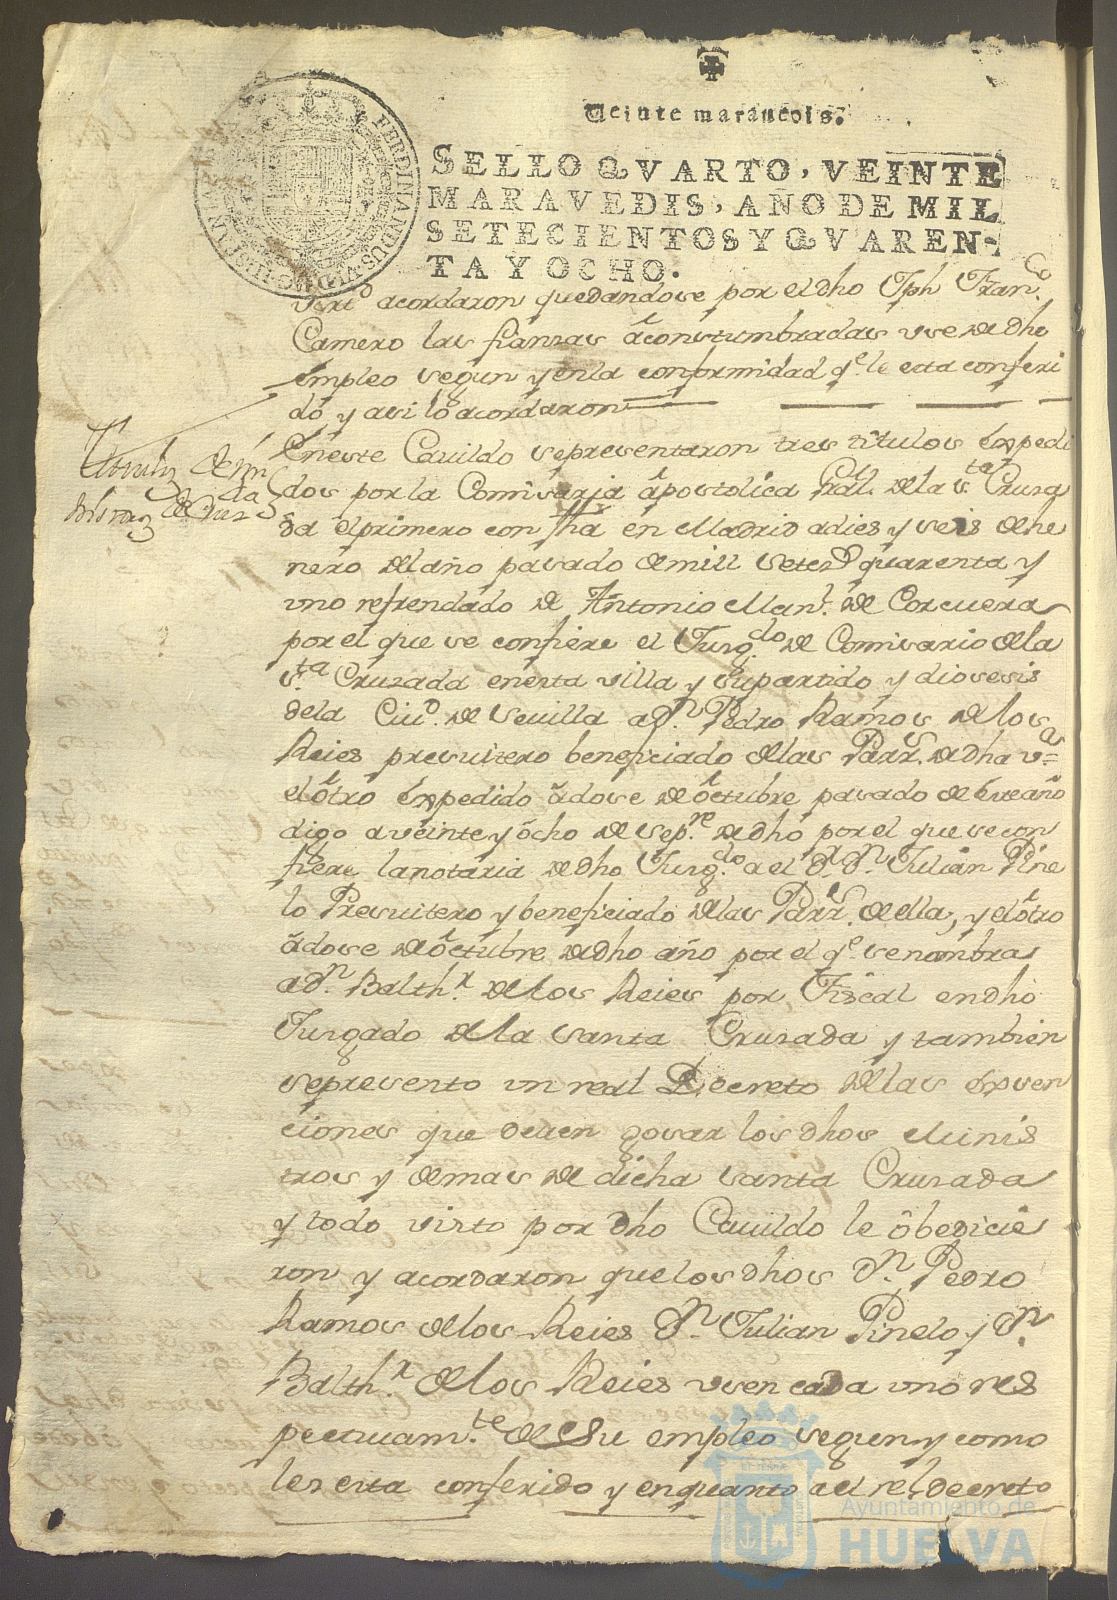 Veinte marauedis.
SELLO QVARTO, VEINTE
MARAVEDIS, AÑO DE MIL
SETECIENTOS Y QVAREN-
TA Y OCHO.
FERDINANDUS VI D G HISPANIA
acordaron quedandose por el dho Jph Franco
Camero las fianzas aconstumbradas use de dho
empleo segun y en la conformidad qe le esta conferi
do y asi lo acordaron
Eneste Cauildo sepresentaron tres titulos expedi
dos por la Comisaria apostolica Gral. de la sta Cruza
da el primero con fha en Madrid a dies y seis de he
nero del año pasado de mill setesos quarenta y
uno refrendado de Antonio Manl. de Corcuera
por el que se confiere el Jusgdo de Comisario de la
sta Cruzada enesta villa y su partido y diosesis
dela Ciud. de Seuilla a Dn Pedro Ramos de los
Reies presuitero beneficiado de las Parrs. de dha va
el otro expedido a dose de octubre pasado de este año
digo a veinte y ocho de Sepre de dho por el que se con
fiere la notaria de dho Jusgdo a el Dr Dn Julian Pine
lo Presuitero y beneficiado de las Parrs. de ella, y el otro
a dose de octubre de dho año por el qe se nombra
a Dn Balthr de los Reies por Fiscal en dho
Jusgado de la santa Cruzada y tambien
sepresento un real Decreto de las exsen
ciones que deuen gosar los dhos Minis
tros y demas de dicha santa Cruzada
y todo visto por dho Cauildo le obedicie
ron y acordaron que los dhos Dn Pedro
Ramos de los Reies Dn Julian Pinelo y Dn
Balthr de los Reies usen cada uno res
pectiuamte de su empleo segun y como
les esta conferido y enquanto a el rel decreto
Ayuntamiento de
HUELVA